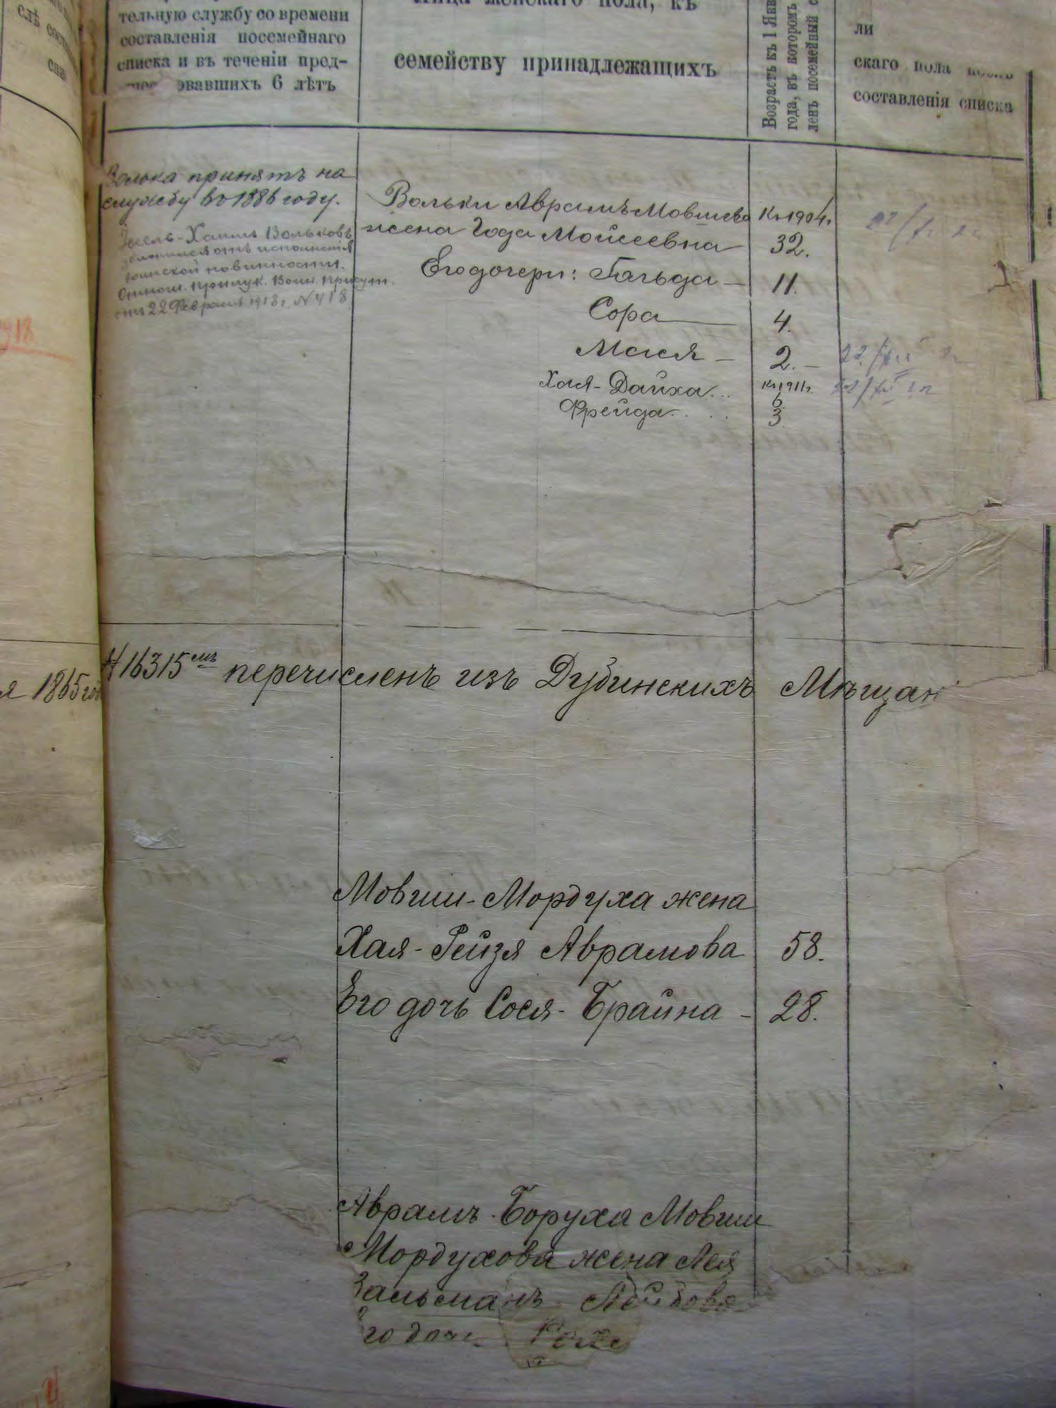 тельную службу со времени
составленія посемейнаго
списка и въ теченіи пред-
эвавшихъ 6 лѣтъ
лица женскаго пола, къ
семейству принадлежащихъ
Возрастъ къ 1 Янв
года, въ которомъ
ленъ посемейный с
ли
скаго пола
составленія списка
Волька принятъ на
службу въ 1886 году.
Хаимъ Вольковъ
воинской повинности.
22 Февраля 1918 г. N 418
Вольки Аврамъ Мовшева Къ 1904 г.
жена Года Мойсеевна 32.
Его дочери: Гольда — 11.
Сора 4.
Мася — 2. —
Хая-Дайха... Къ 1911 г. 6
Фрейда 3
я 1865 го
N 16315 мъ перечисленъ изъ Дубинскихъ Мѣщан
Мовши-Мордуха жена
Хая-Рейзя Аврамова 58.
Его дочь Сося-Брайна - 28.
Аврамъ-Боруха Мовши
Мордухова жена Лея
Зальманъ
Его дочь